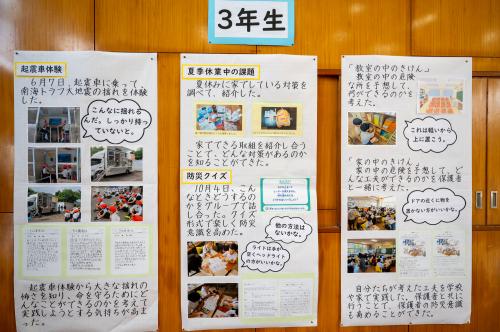 3年生
起震車体験
6月7日、起震車に乗って、
南海トラフ大地震の揺れを体験
した。
こんなに揺れる
んだ。しっかり持っ
ていないと。
起震車体験から大きな揺れの
怖さを知り、命を守るためにど
んなことができるのかを考えて
実践しようとする気持ちが高ま
った。
夏季休業中の課題
夏休みに家でしている対策を
調べて、紹介した。
家でできる取組を紹介し合う
ことで、どんな対策があるのか
を知ることができた。
防災クイズ
10月4日、こん
なときどうするのか
をグループで話
し合った。クイズ
形式で楽しく防災
意識を高めた。
他の方法は
ないかな。
ライトは手が
空くヘッドライト
の方がいいかな。
「教室の中のきけん」
教室の中の危険
な所を予想して、
何ができるのかを
考えた。
これは軽いから
上に置こう。
「家の中のきけん」
家の中の危険を予想して、ど
んな工夫ができるのかを保護者
と一緒に考えた。
ドアの近くに物を
置かない方がいいかな。
自分たちが考えた工夫を学校
や家で実践した。保護者と共に
行うことで、保護者の防災意識
も高めることができた。